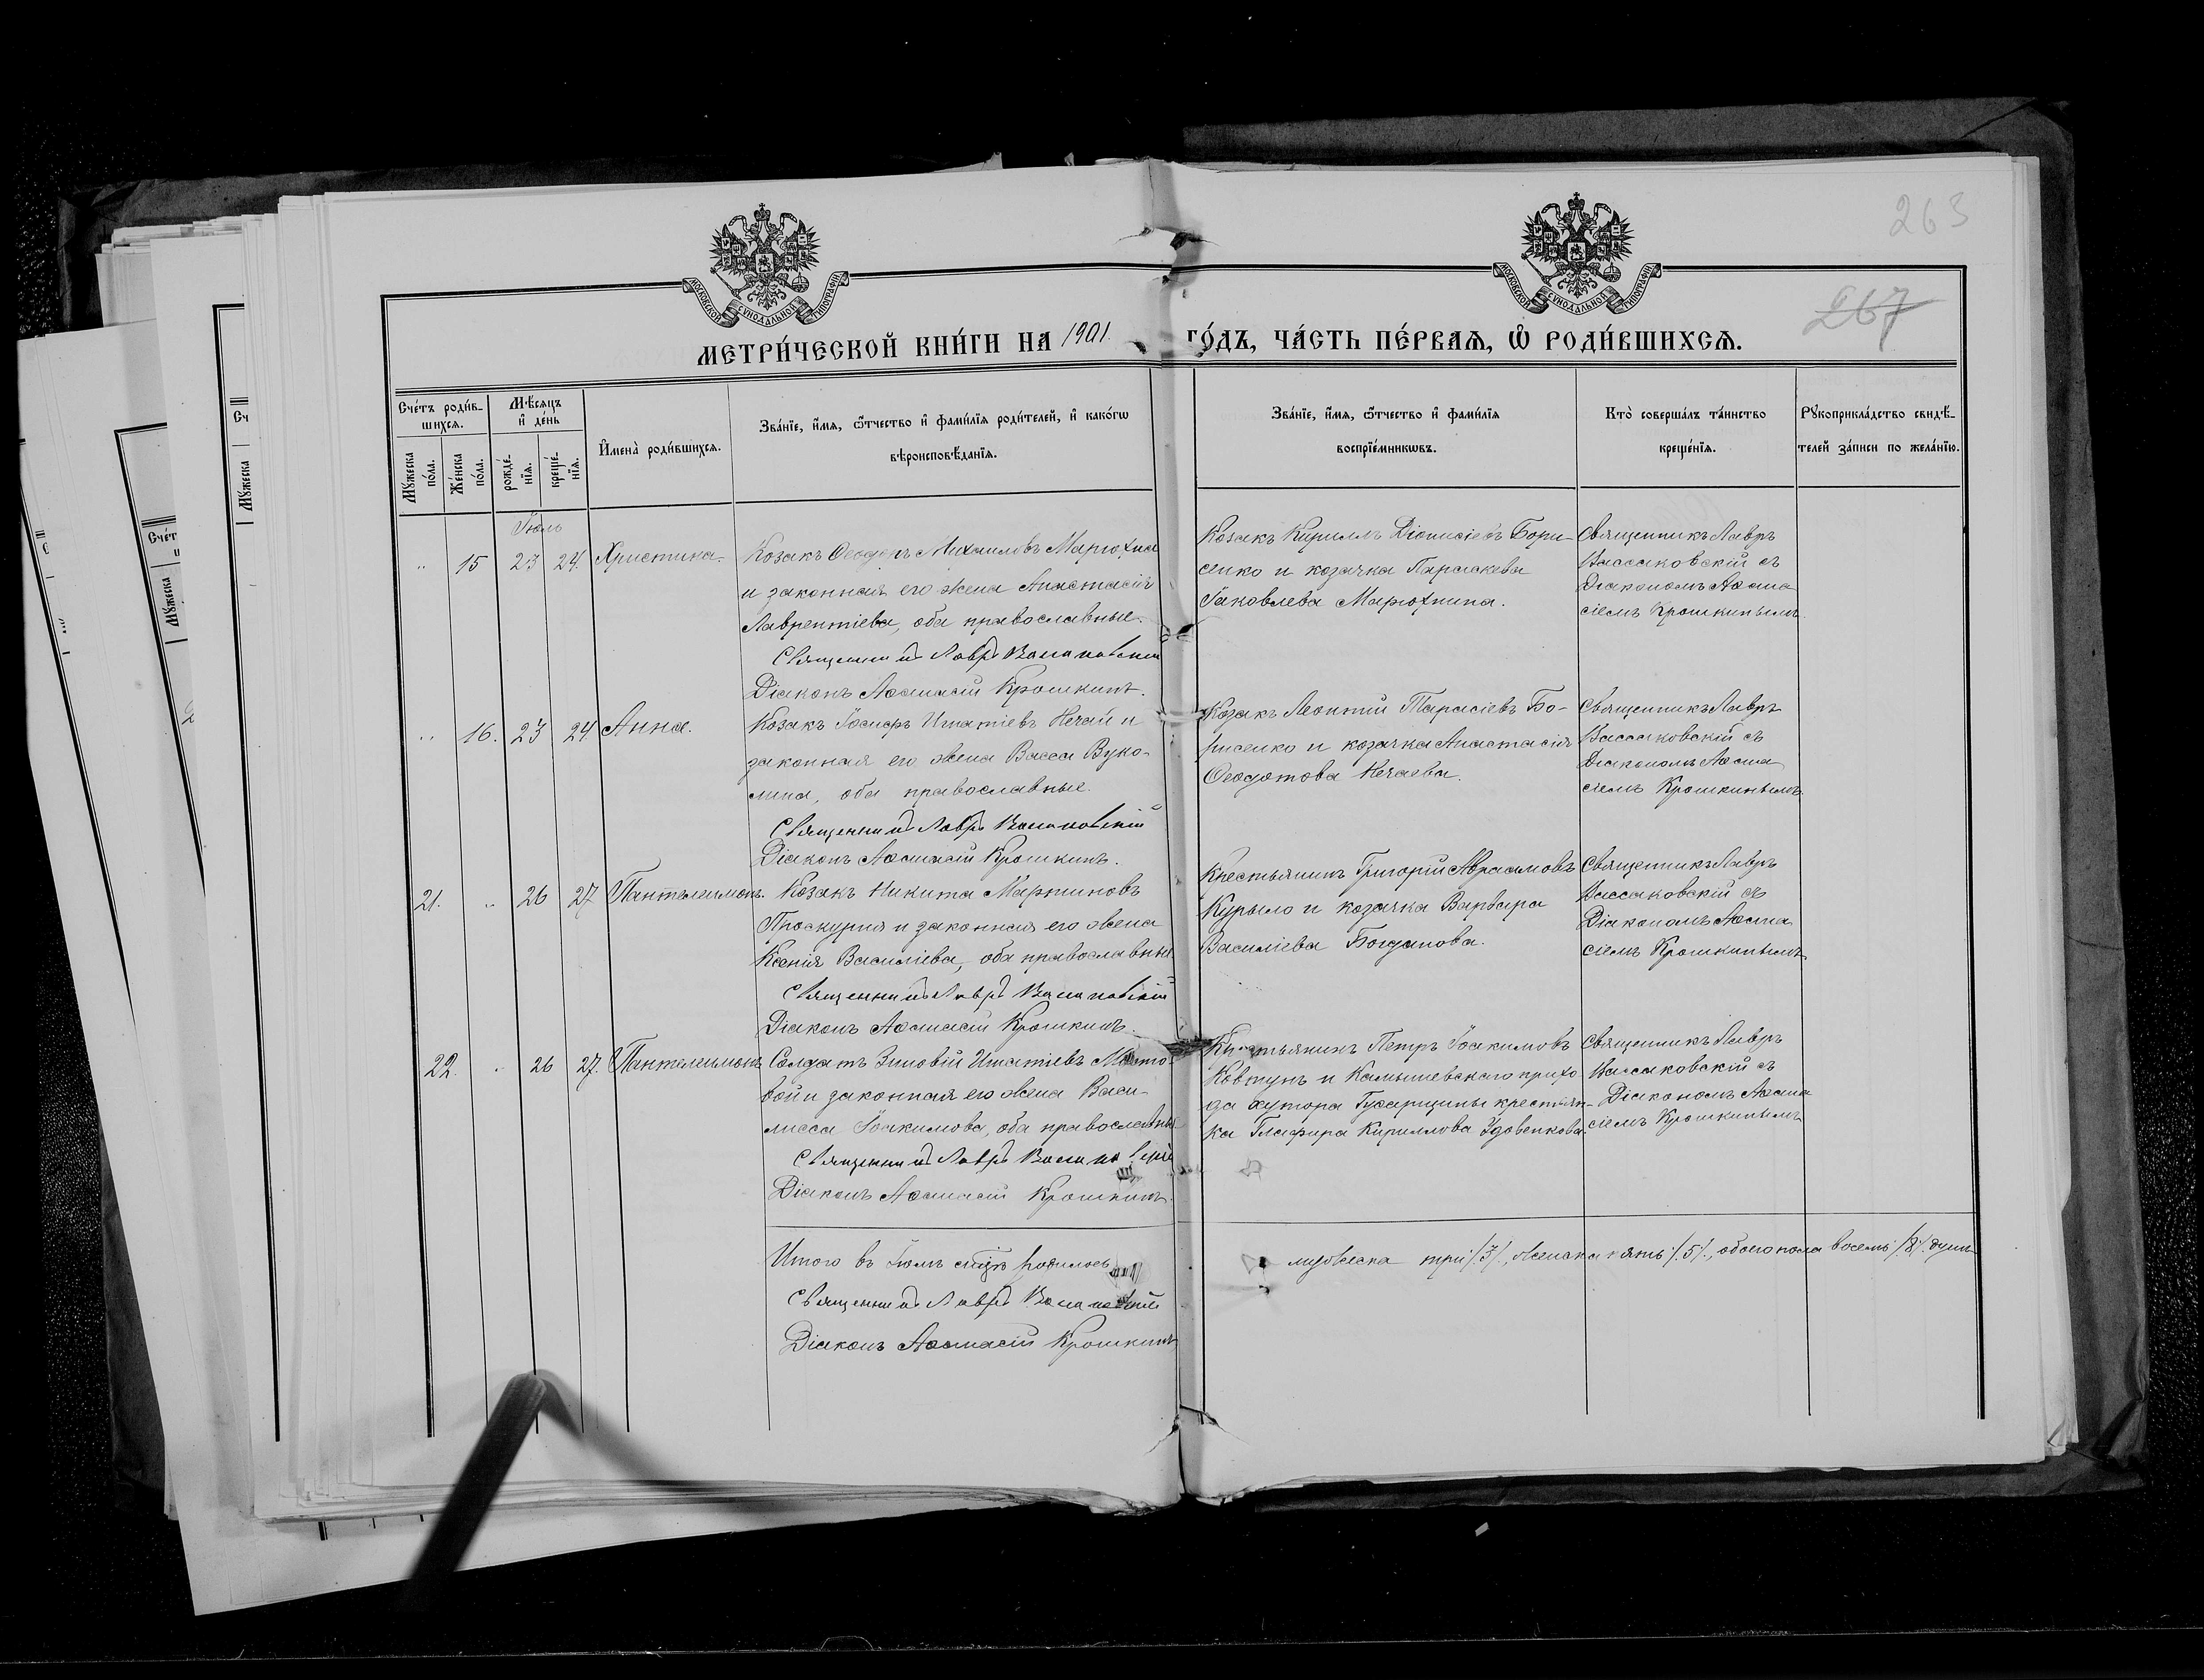 263
267
МОСКОВСКОЙ СѴНОДАЛЬНОЙ ТИПОГРАФІИ
МОСКОВСКОЙ СѴНОДАЛЬНОЙ ТИПОГРАФІИ
МЕТРИ́ЧЕСКОЙ КНИ́ГИ НА 1901. ГО́ДЪ, ЧА́СТЬ ПЕ́РВАѦ, Ѡ҆ РОДИ́ВШИХСѦ.
Сче́тъ роди́в-
шихсѧ.
Мꙋ́жеска по́ла.
Же́нска по́ла.
Мѣ́сѧцъ
и҆ де́нь
рожде́-
нїѧ.
креще́-
нїѧ.
И҆мена̀ роди́вшихсѧ.
Зва́нїе, и҆́мѧ, ѻ҆́тчество и҆ фами́лїѧ роди́телей, и҆ како́гѡ
вѣроисповѣ́данїѧ.
Зва́нїе, и҆́мѧ, ѻ҆́тчество и҆ фами́лїѧ
воспрїе́мникѡвъ.
Кто̀ соверша́лъ та́инство
креще́нїѧ.
Рꙋкоприкла́дство свидѣ́-
телей за́писи по жела́нїю.
Іюль
" 15 23 24. Христина.
Козакъ Ѳеодоръ Михаиловъ Марюхна
и законная его жена Анастасія
Лаврентіева, оба православные.
Священникъ Лавръ Вассаковскій
Діаконъ Аѳанасій Крошкинъ.
Козакъ Кириллъ Діонисіевъ Бори-
сенко и козачка Параскева
Іаковлева Марюхнина.
Священникъ Лавръ
Вассаковскій съ
Діакономъ Аѳана
сіемъ Крошкинымъ.
" 16. 23 24 Анна.
Козакъ Іосифъ Игнатіевъ Нечай и
законная его жена Васса Вуко-
лина, оба православные.
Священникъ Лавръ Вассаковскій
Діаконъ Аѳанасій Крошкинъ.
Козакъ Леонтій Тарасіевъ Бо-
рисенко и козачка Анастасія
Ѳеодотова Нечаева.
Священникъ Лавръ
Вассаковскій съ
Діакономъ Аѳана
сіемъ Крошкинымъ.
21. " 26 27 Пантелеимонъ.
Козакъ Никита Мартиновъ
Проскурня и законная его жена
Ксенія Василіева, оба православные
Священникъ Лавръ Вассаковскій
Діаконъ Аѳанасій Крошкинъ.
Крестьянинъ Григорій Авраамовъ
Курыло и козачка Варвара
Василіева Богданова.
Священникъ Лавръ
Вассаковскій съ
Діакономъ Аѳана
сіемъ Крошкинымъ
22. " 26 27. Пантелеимонъ
Солдатъ Зиновій Игнатіевъ
и законная его жена Васи-
лисса Іоакимова, оба православные
Священникъ Лавръ Вассаковскій
Діаконъ Аѳанасій Крошкинъ.
Крестьянинъ Петръ Іоакимовъ
Ковтунъ и Камышевскаго прихо
да хутора Гусарщины крестьян-
ка Глафира Кириллова Удовенкова.
Священникъ Лавръ
Вассаковскій съ
Діакономъ Аѳана
сіемъ Крошкинымъ
Итого въ Іюлѣ мѣсяцѣ родилось мужеска три /3/, женска пять /5/, обоего пола восемь /8/ душъ
Священникъ Лавръ Вассаковскій
Діаконъ Аѳанасій Крошкинъ